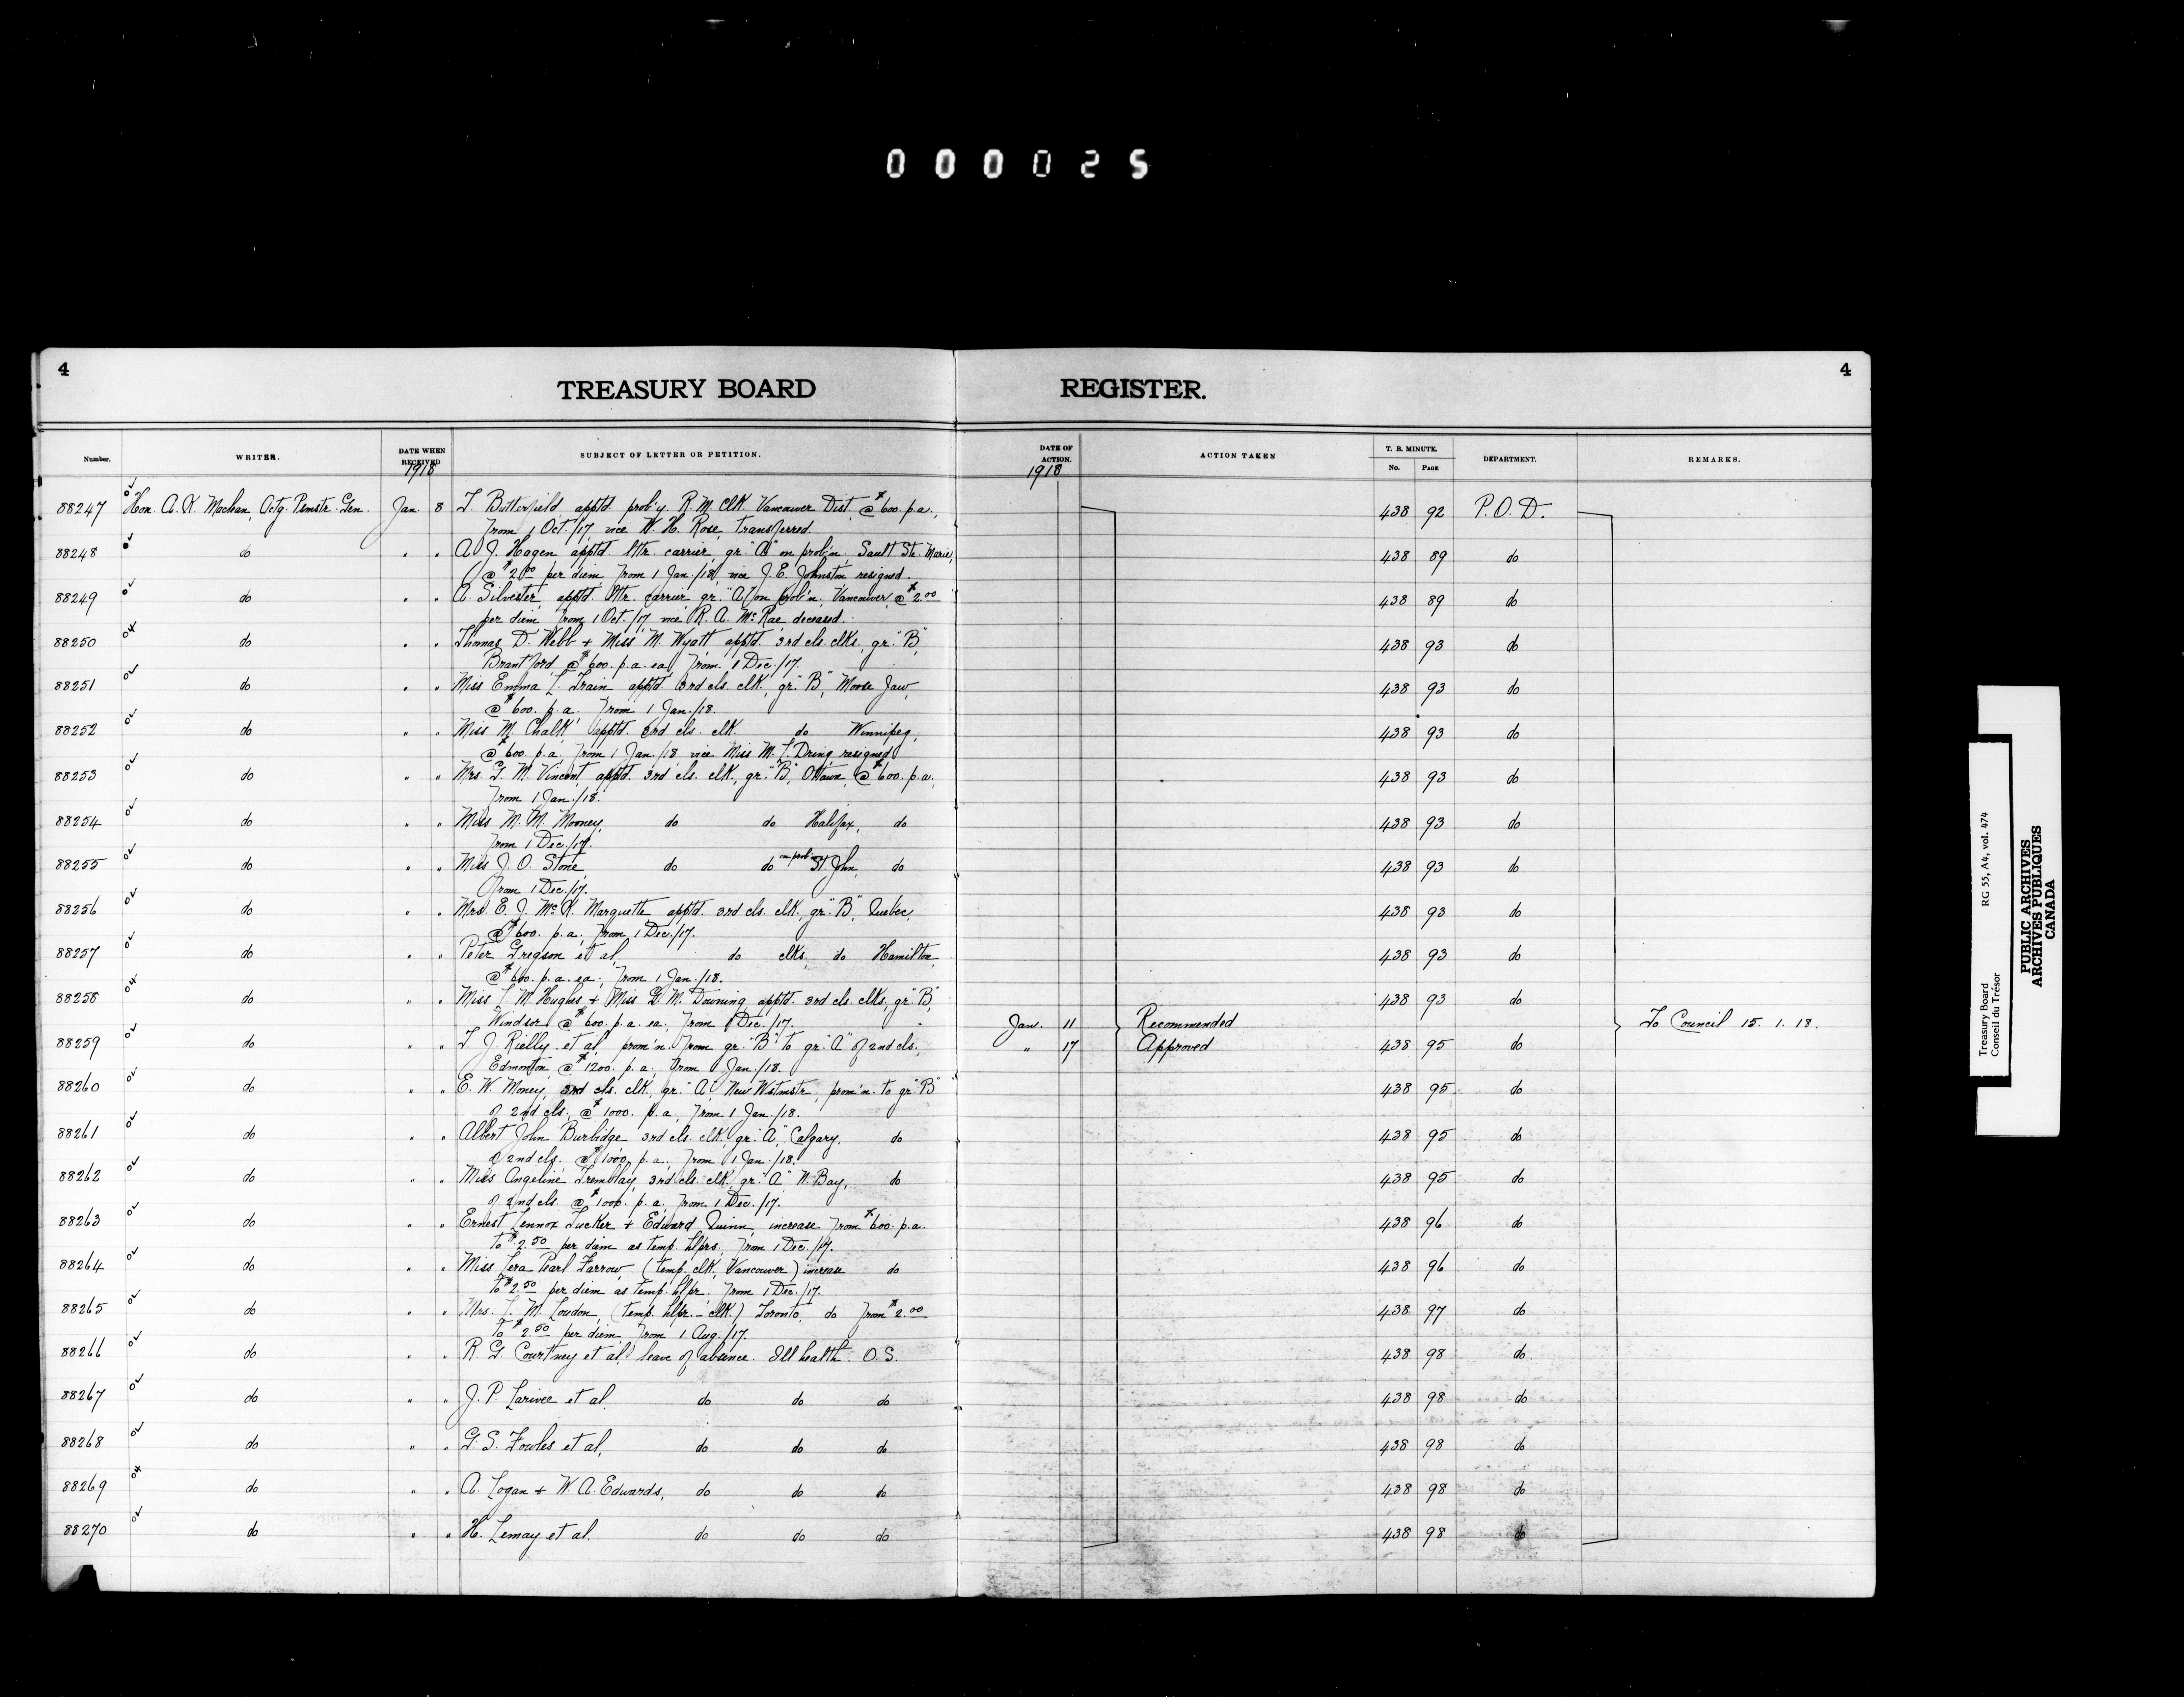 000025
4
4
TREASURY BOARD REGISTER.
Number. WRITER. DATE WHEN RECEIVED 1918 SUBJECT OF LETTER OR PETITION. DATE OF ACTION. 1918 ACTION TAKEN T. B. MINUTE. No. PAGE DEPARTMENT. REMARKS.
88247 Hon. A. K. Maclean, Actg. Pmstr. Gen. Jan. 8 T. Butterfield apptd prob'y R. M. Clk. Vancouver Dist, @ $600. p.a., 438 92 P.O.D.
from 1 Oct./17, vice W. H. Rose, transferred.
88248 do " " A. J. Hagen apptd. lttr. carrier gr. "A" on prob'n, Sault Ste. Marie, 438 89 do
@ $2.00 per diem, from 1 Jan./18, vice J. E. Johnston resigned.
88249 do " " A. Silvester, apptd. lttr. carrier gr. "A" on prob'n, Vancouver, @ $2.00 438 89 do
per diem, from 1 Oct./17, vice R. A. McRae, deceased.
88250 do " " Thomas D. Webb + Miss M. Wyatt, apptd. 3rd cls. clks, gr. "B", 438 93 do
Brantford, @ $600. p.a. ea, from 1 Dec./17.
88251 do " " Miss Emma L. Train apptd 3rd cls. clk, gr. "B", Moose Jaw, 438 93 do
@ $600. p.a. from 1 Jan./18.
88252 do " " Miss M. Chalk, apptd. 3rd cls. clk. do Winnipeg, 438 93 do
@ $600. p.a., from 1 Jan./18, vice Miss M. L. Dring, resigned
88253 do " " Mrs. G. M. Vincent, apptd. 3rd cls. clk, gr. "B", Ottawa, @ $600. p.a., 438 93 do
from 1 Jan./18.
88254 do " " Miss M. M. Mooney, do do Halifax, do 438 93 do
from 1 Dec./17.
88255 do " " Miss J. O. Stone, do do on prob'n St John, do 438 93 do
from 1 Dec./17.
88256 do " " Mrs. E. J. McK. Marquette, apptd. 3rd cls. clk, gr. "B", Quebec, 438 93 do
@ $600. p.a., from 1 Dec./17.
88257 do " " Peter Gregson et al, do clks, do Hamilton, 438 93 do
@ $600. p.a. ea, from 1 Jan./18.
88258 do " " Miss L. M. Hughes + Miss G. M. Downing, apptd. 3rd cls. clks, gr. "B", 438 93 do
Windsor @ $600. p.a. ea, from 1 Dec./17. Jan. 11 Recommended To Council 15. 1. 18.
88259 do " " T. J. Rielly et al, prom'n. from gr. "B" to gr. "A" of 2nd cls., " 17 Approved 438 95 do
Edmonton, @ $1200. p.a., from 1 Jan./18.
88260 do " " E. W. Money, 3rd cls. clk, gr. "A", New Wstmstr, prom'n. to gr. "B" 438 95 do
of 2nd cls., @ $1000. p.a., from 1 Jan./18.
88261 do " " Albert John Burbidge 3rd cls. clk, gr. "A", Calgary, do 438 95 do
of 2nd cls. @ $1000. p.a., from 1 Jan./18.
88262 do " " Miss Angeline Tremblay, 3rd cls. clk, gr. "A" N. Bay, do 438 95 do
of 2nd cls. @ $1000. p.a., from 1 Dec./17.
88263 do " " Ernest Lennox Tucker + Edward Quinn, increase from $600. p.a. 438 96 do
to $2.50 per diem as temp. hlprs, from 1 Dec./17.
88264 do " " Miss Lera Pearl Farrow, (temp. clk, Vancouver) increase do 438 96 do
to $2.50 per diem as temp. hlpr. from 1 Dec./17.
88265 do " " Mrs. L. M. Loudon, (temp. hlpr. - clk.) Toronto, do from $2.00 438 97 do
to $2.50 per diem, from 1 Aug./17.
88266 do " " R. G. Courtney et al, leave of absence. Ill health. O.S. 438 98 do
88267 do " " J. P. Larivee et al. do do do 438 98 do
88268 do " " G. S. Fowles et al, do do do 438 98 do
88269 do " " A. Logan + W. A. Edwards, do do do 438 98 do
88270 do " " H. Lemay et al. do do do 438 98 do
Treasury Board RG 55, A4, vol. 474
Conseil du Trésor
PUBLIC ARCHIVES
ARCHIVES PUBLIQUES
CANADA